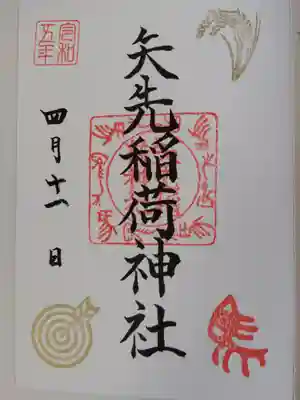 矢先稲荷神社
令和
五年
四月十一日